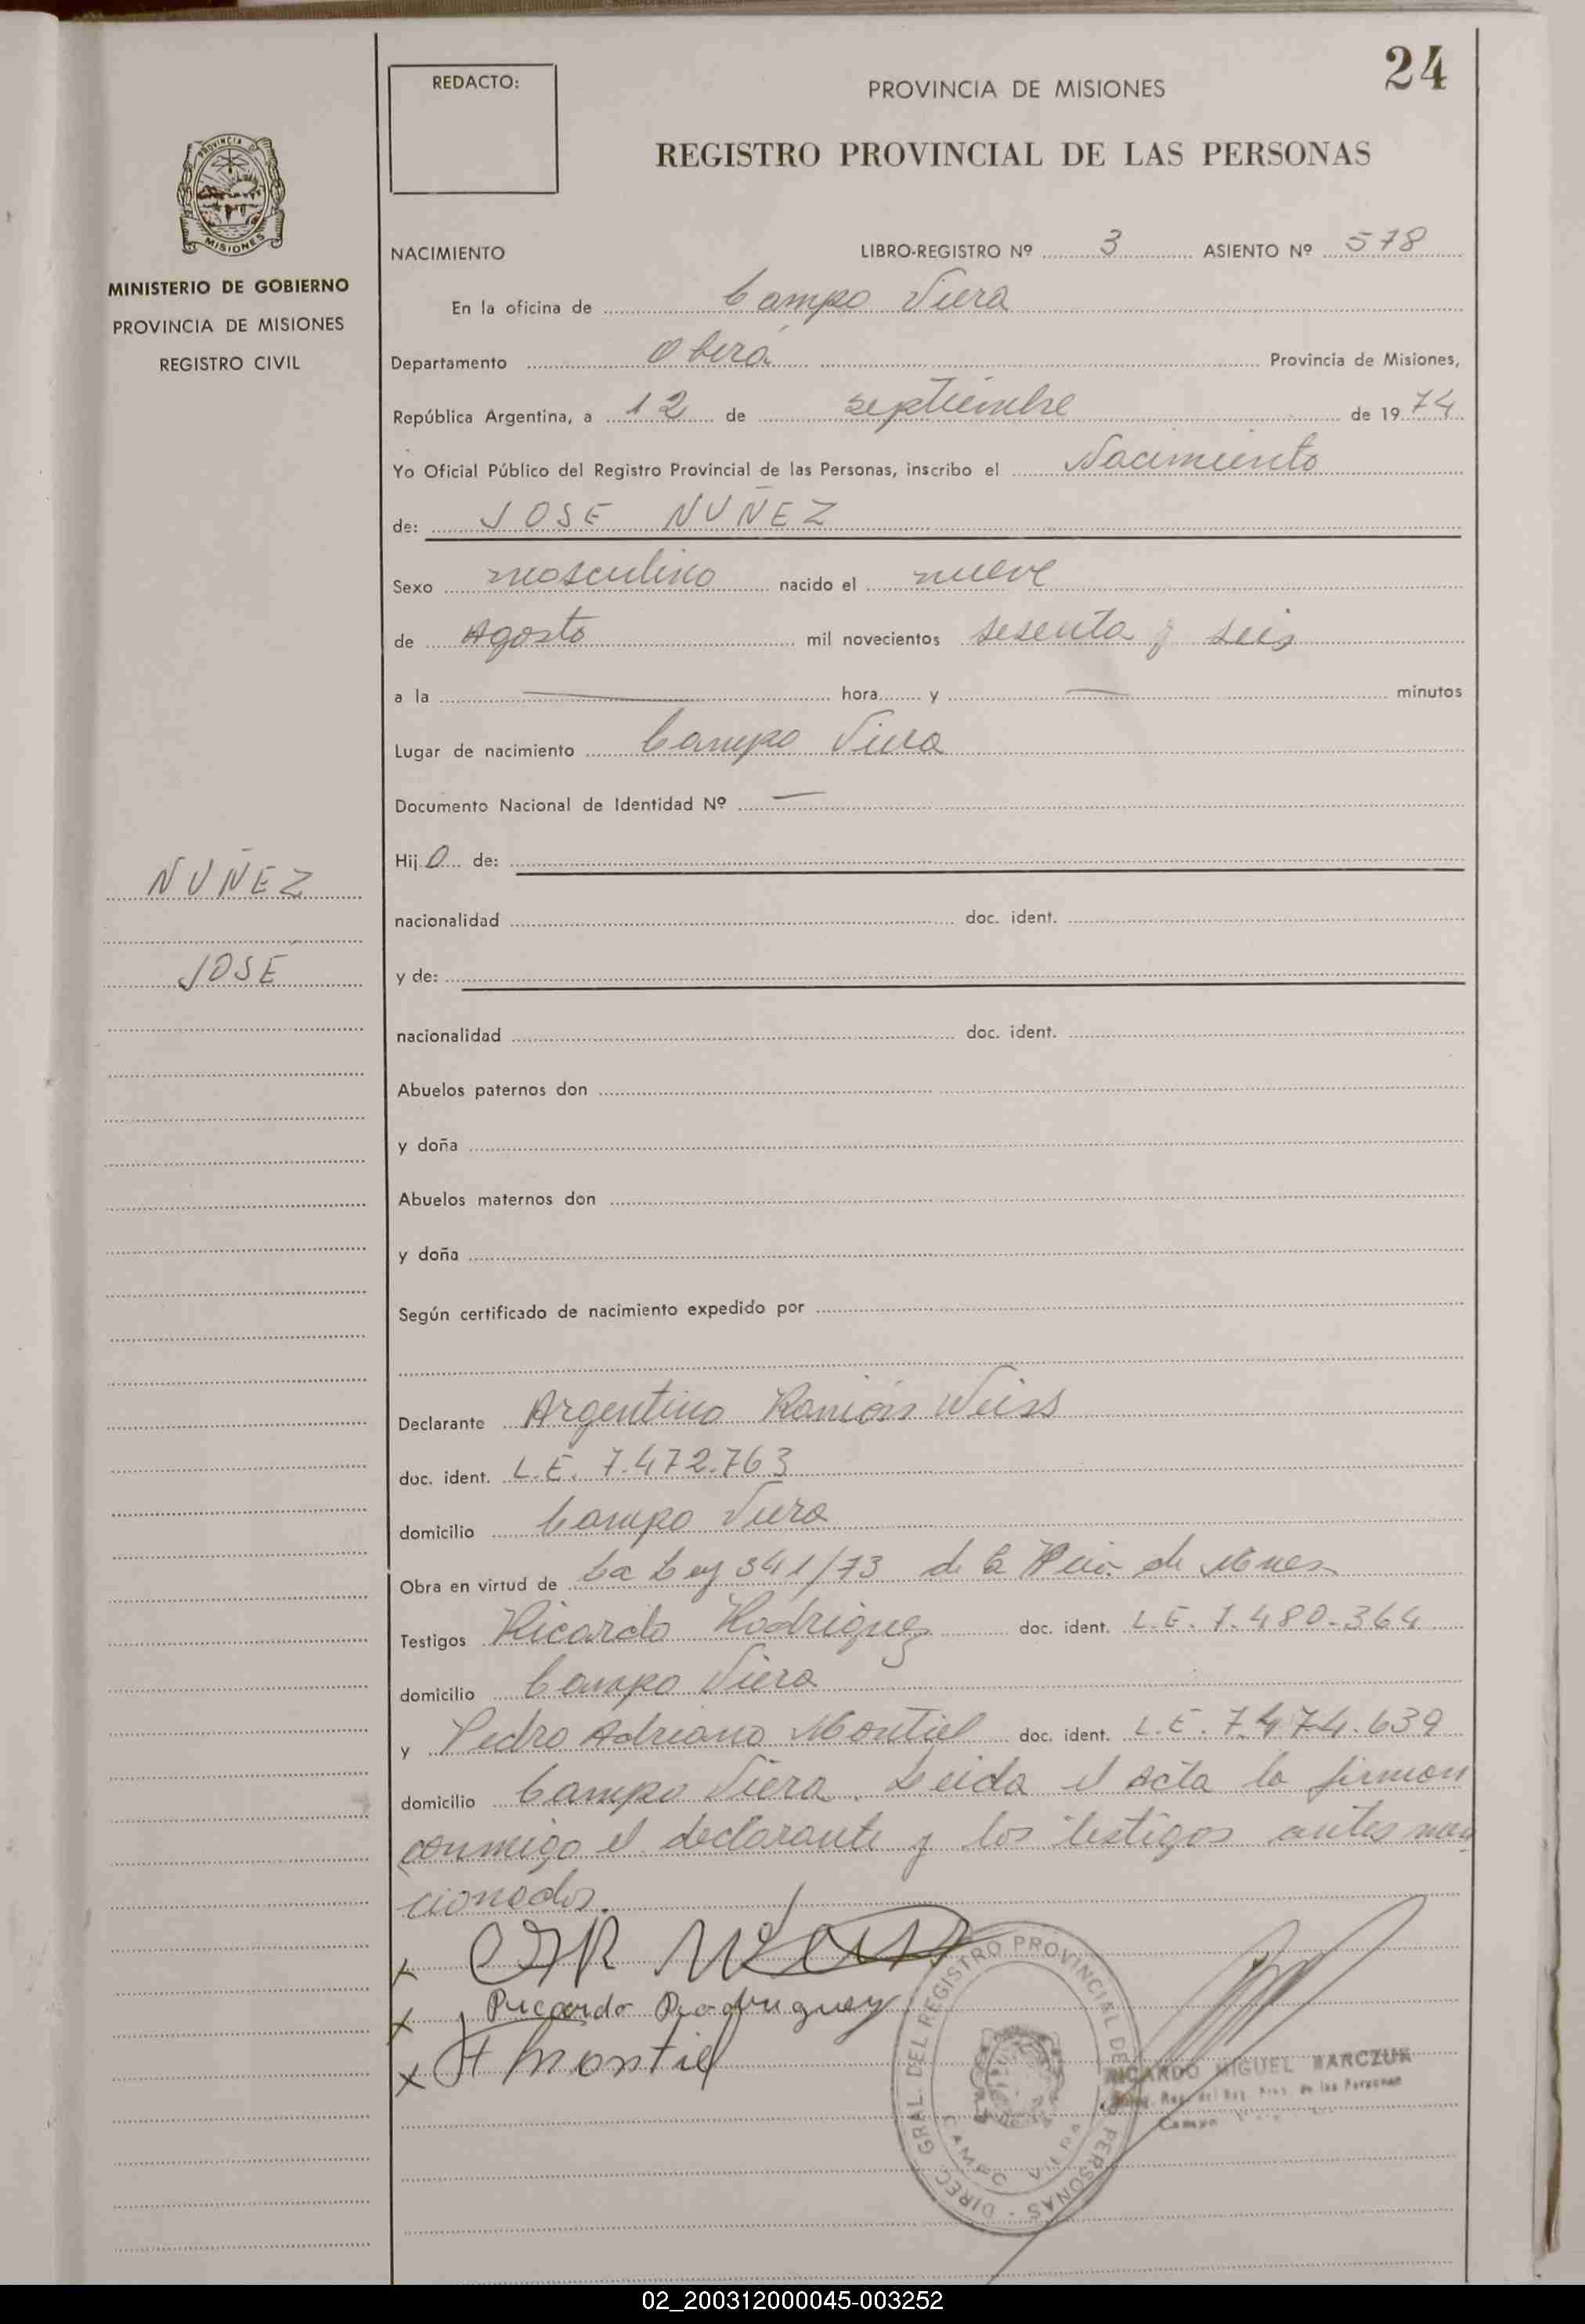 24
REDACTO:
PROVINCIA DE MISIONES
REGISTRO PROVINCIAL DE LAS PERSONAS
PROVINCIA DE
MISIONES
MINISTERIO DE GOBIERNO
PROVINCIA DE MISIONES
REGISTRO CIVIL
NACIMIENTO LIBRO-REGISTRO Nº 3 ASIENTO Nº 578
En la oficina de Campo Viera
Departamento Oberá Provincia de Misiones,
República Argentina, a 12 de septiembre de 1974
Yo Oficial Público del Registro Provincial de las Personas, inscribo el Nacimiento
de: JOSE NUÑEZ
Sexo masculino nacido el nueve
de Agosto mil novecientos sesenta y seis
a la — hora y — minutos
Lugar de nacimiento Campo Viera
Documento Nacional de Identidad Nº —
Hijo de:
NUÑEZ
nacionalidad doc. ident.
JOSÉ
y de:
nacionalidad doc. ident.
Abuelos paternos don
y doña
Abuelos maternos don
y doña
Según certificado de nacimiento expedido por
Declarante Argentino Ramón Weiss
doc. ident. L.E. 7.472.763
domicilio Campo Viera
Obra en virtud de La Ley 341/73 de la de
Testigos Ricardo Rodriguez doc. ident. L.E. 7.480.364
domicilio Campo Viera
y Pedro Adriano Montiel doc. ident. L.E. 7.474.639
domicilio Campo Viera. Leida el acta la firman
conmigo el declarante y los testigos antes men
cionados.
x
x Ricardo Rodriguez
x Montiel
DIREC. GRAL. DEL REGISTRO PROVINCIAL DE PERSONAS
CAMPO VIERA
RICARDO MIGUEL MARCZUK
de las Personas
Campo
02_200312000045-003252